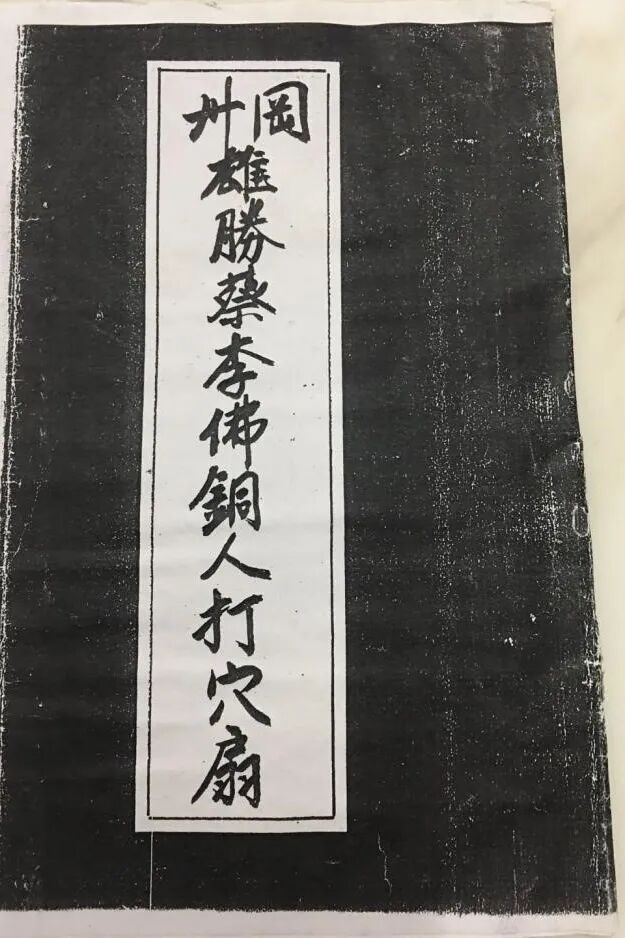 岡州
雄勝蔡李佛銅人打穴扇